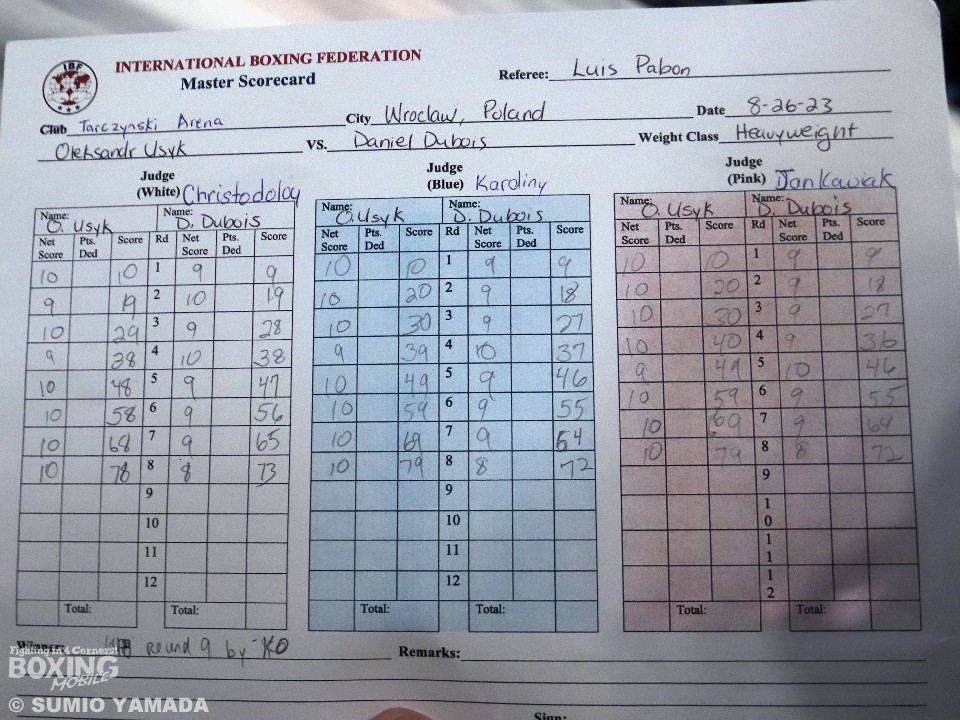 IBF
INTERNATIONAL BOXING FEDERATION
Master Scorecard
Referee: Luis Pabon
Club Tarczynski Arena City Wroclaw, Poland Date 8-26-23
Oleksandr Usyk VS. Daniel Dubois Weight Class Heavyweight
Judge (White) Christodoloy
Name: O. Usyk Name: D. Dubois
Net Score Pts. Ded Score Rd Net Score Pts. Ded Score
10 10 1 9 9
9 19 2 10 19
10 29 3 9 28
9 38 4 10 38
10 48 5 9 47
10 58 6 9 56
10 68 7 9 65
10 78 8 8 73
9
10
11
12
Total: Total:
Judge (Blue) Karoliny
Name: O. Usyk Name: D. Dubois
Net Score Pts. Ded Score Rd Net Score Pts. Ded Score
10 10 1 9 9
10 20 2 9 18
10 30 3 9 27
9 39 4 10 37
10 49 5 9 46
10 59 6 9 55
10 69 7 9 64
10 79 8 8 72
9
10
11
12
Total: Total:
Judge (Pink) Jankowiak
Name: O. Usyk Name: D. Dubois
Net Score Pts. Ded Score Rd Net Score Pts. Ded Score
10 10 1 9 9
10 20 2 9 18
10 30 3 9 27
10 40 4 9 36
9 49 5 10 46
10 59 6 9 55
10 69 7 9 64
10 79 8 8 72
9
10
11
12
Total: Total:
round 9 by KO Remarks:
Fighting in 4 Corners!
BOXING
MOBILE
© SUMIO YAMADA
Sign: